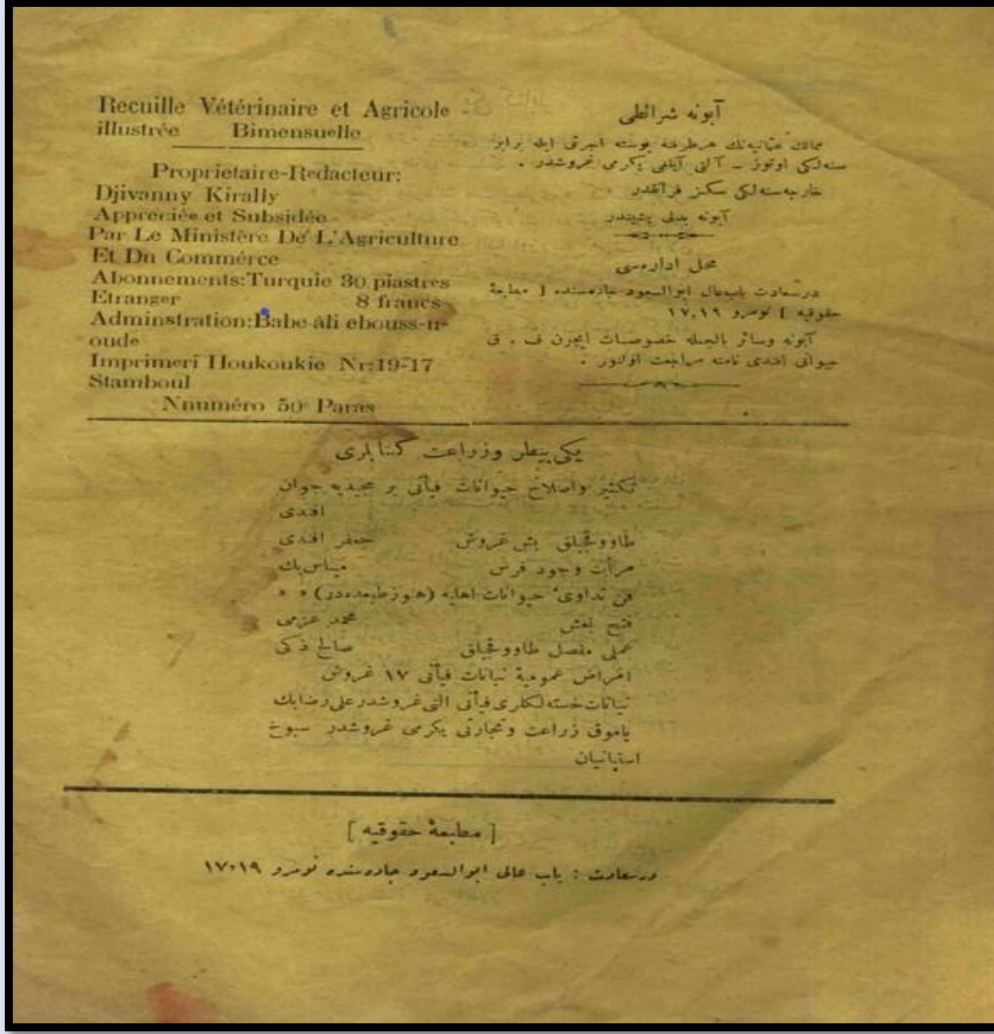 Recuille Vétérinaire et Agricole
illustrée Bimensuelle
Proprietaire-Redacteur:
Djivanny Kirally
Appreciée et Subsidée
Par Le Ministére De L'Agriculture
Et Du Commérce
Abonnements:Turquie 30 piastres
Etranger 8 francs
Adminstration:Babe âli ebouss-u-
oude
Imprimeri Houkoukie Nr:19-17
Stamboul
Nnuméro 50 Paras
آبونه شرائطی
ممالك عثمانیه‌نك هر طرفنه پوسته اجرتی ایله برابر
سنه‌لكی اوتوز ــ آلتی آیلغی یكرمی غروشدر .
خارجیه سنه‌لكی سكز فرانقدر
آبونه بدلی پشیندر
محل اداره‌سی
درسعادت بابعالی ابوالسعود جاده‌سنده [ مطبعهٔ
حقوقیه ] نومرو ١٧،١٩
آبونه وسائر بالجمله خصوصات ایچون ف . ق
جیوانی افندی نامنه مراجعت اولنور .
یكی بیطر وزراعت كتابلری
تكثیر واصلاح حیوانات فیأتی بر مجیدیه جوان
افندی
طاووقجیلق بش غروش جعفر افندی
مرأت وجود فرس میناس بك
فن تداوئ حیوانات اهلیه (هنوز طبعده‌در) « «
فتح نعش محمد عزمی
عملی مفصل طاووقجیلق صالح ذكی
امراض عمومیهٔ نباتات فیأتی ١٧ غروش
نباتات خسته‌لكلری فیأتی التی غروشدر علی رضا بك
پاموق زراعت وتجارتی یكرمی غروشدر سبوخ
استپانیان
[ مطبعهٔ حقوقیه ]
درسعادت : باب عالی ابوالسعود جاده‌سنده نومرو ١٧-١٩